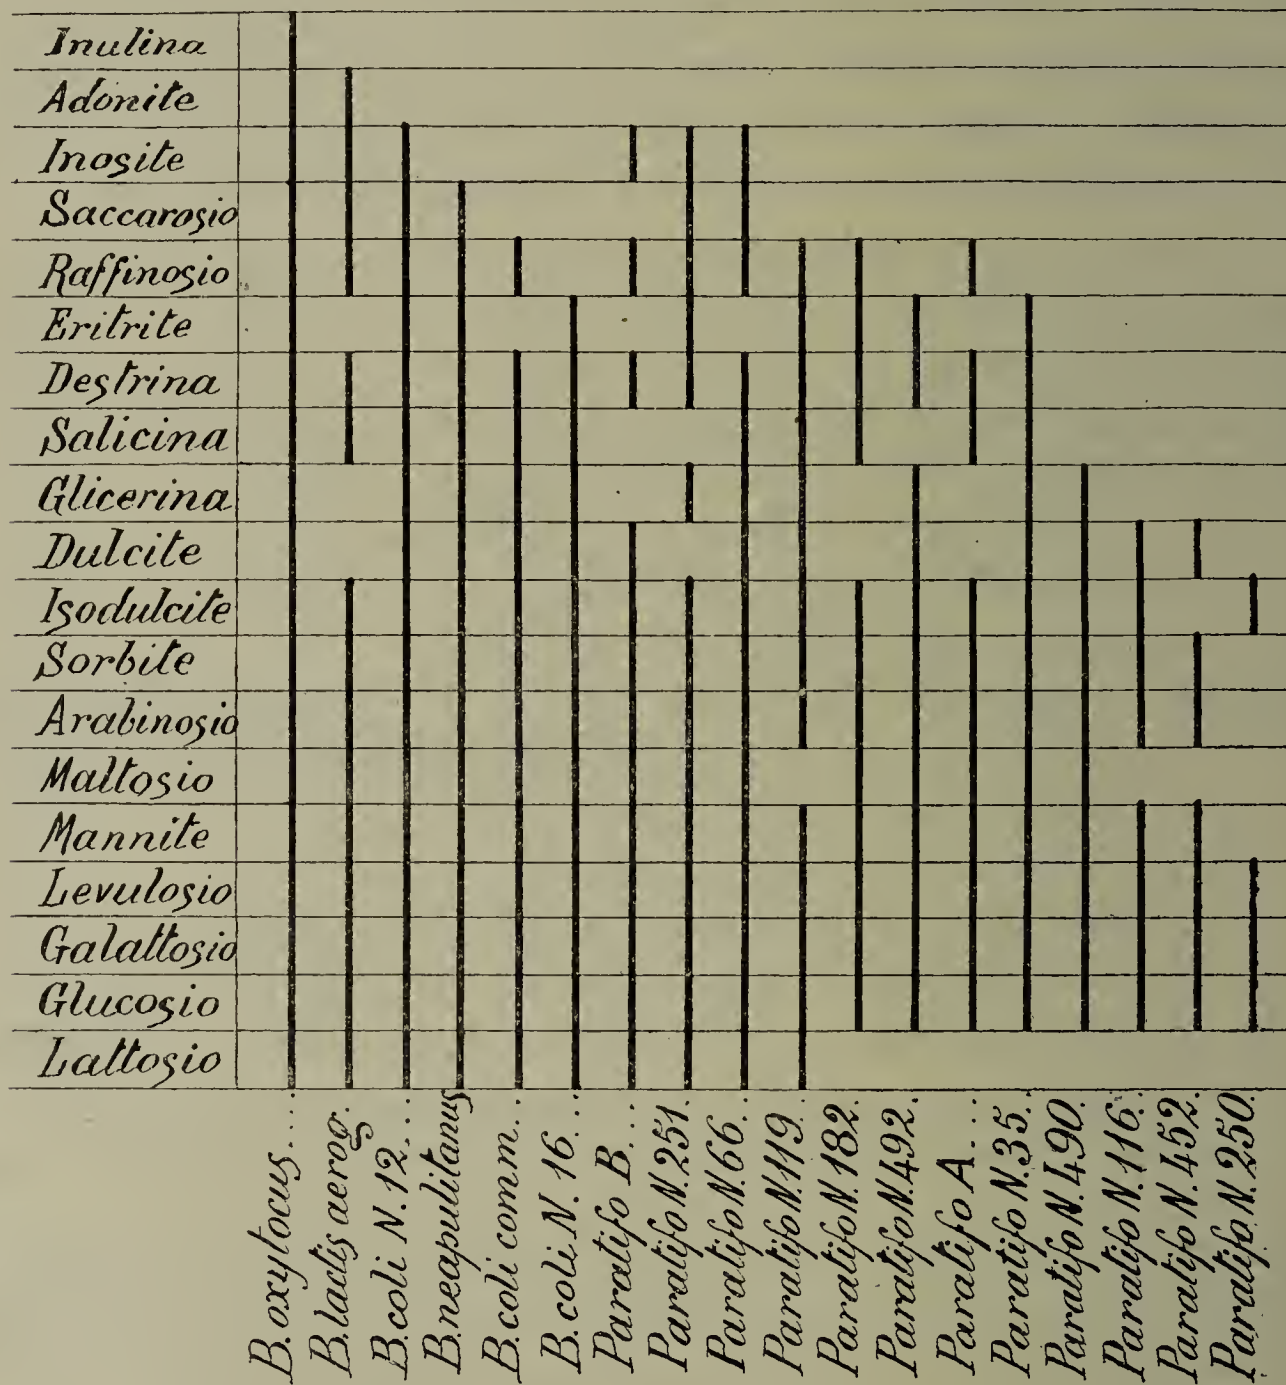 Inulina
Adonite
Inosite
Saccarosio
Raffinosio
Eritrite
Destrina
Salicina
Glicerina
Dulcite
Isodulcite
Sorbite
Arabinosio
Maltosio
Mannite
Levulosio
Galattosio
Glucosio
Lattosio
B. oxytocus....
B. lactis aerog.
B. coli N. 12...
B. neapulitanus
B. coli comm...
B. coli N. 16...
Paratifo B...
Paratifo N. 251.
Paratifo N. 66..
Paratifo N. 119.
Paratifo N. 182.
Paratifo N. 492.
Paratifo A...
Paratifo N. 35..
Paratifo N. 490.
Paratifo N. 116.
Paratifo N. 452.
Paratifo N. 250.